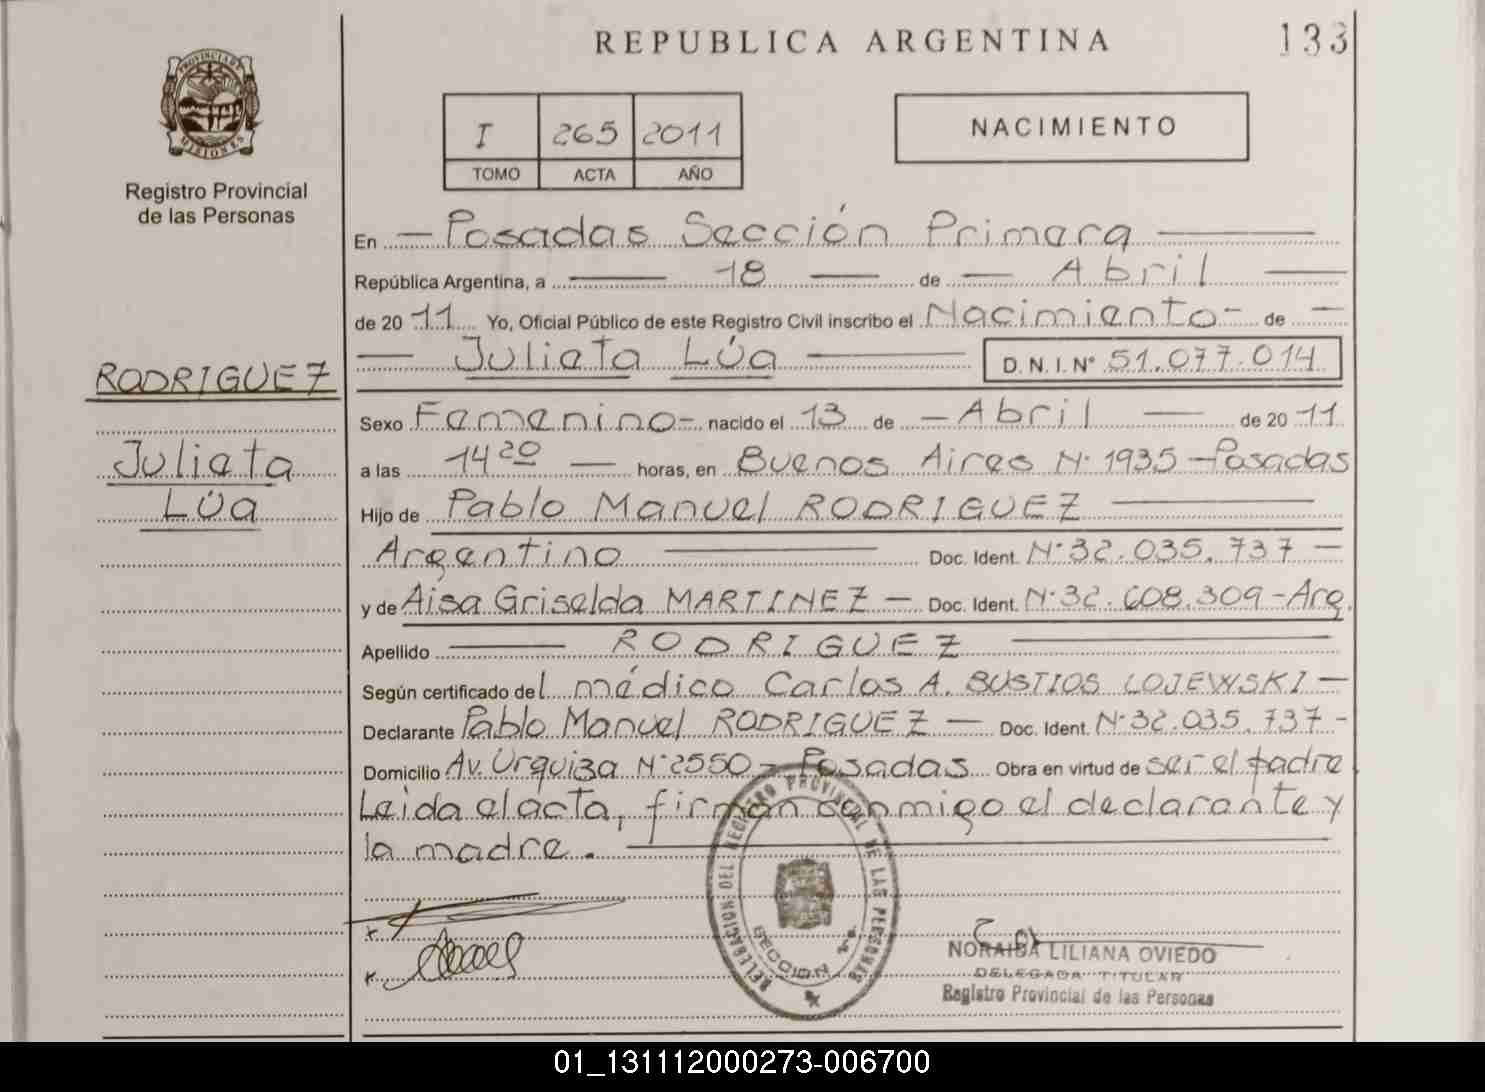 REPUBLICA ARGENTINA
133
PROVINCIA DE MISIONES
Registro Provincial
de las Personas
I 265 2011
TOMO ACTA AÑO
NACIMIENTO
En — Posadas Sección Primera —
República Argentina, a — 18 — de — Abril —
de 2011 Yo, Oficial Público de este Registro Civil inscribo el Nacimiento - de —
— Julieta Lúa — D.N.I. Nº 51.077.014
RODRIGUEZ
Julieta
Lúa
Sexo Femenino - nacido el 13 de — Abril — de 2011
a las 14 20 — horas, en Buenos Aires Nº 1935 - Posadas
Hijo de Pablo Manuel RODRIGUEZ —
Argentino — Doc. Ident. Nº 32.035.737 —
y de Aisa Griselda MARTINEZ — Doc. Ident. Nº 32.608.309 - Arg.
Apellido — RODRIGUEZ —
Según certificado del médico Carlos A. BUSTIOS LOJEWSKI —
Declarante Pablo Manuel RODRIGUEZ — Doc. Ident. Nº 32.035.737 -
Domicilio Av. Urquiza Nº 2550 - Posadas Obra en virtud de ser el padre
Leida el acta, firman conmigo el declarante y
la madre. —
DELEGACION DEL REGISTRO PROVINCIAL DE LAS PERSONAS
SECCION 1ª
NORAIDA LILIANA OVIEDO
DELEGADA TITULAR
Registro Provincial de las Personas
01_131112000273-006700